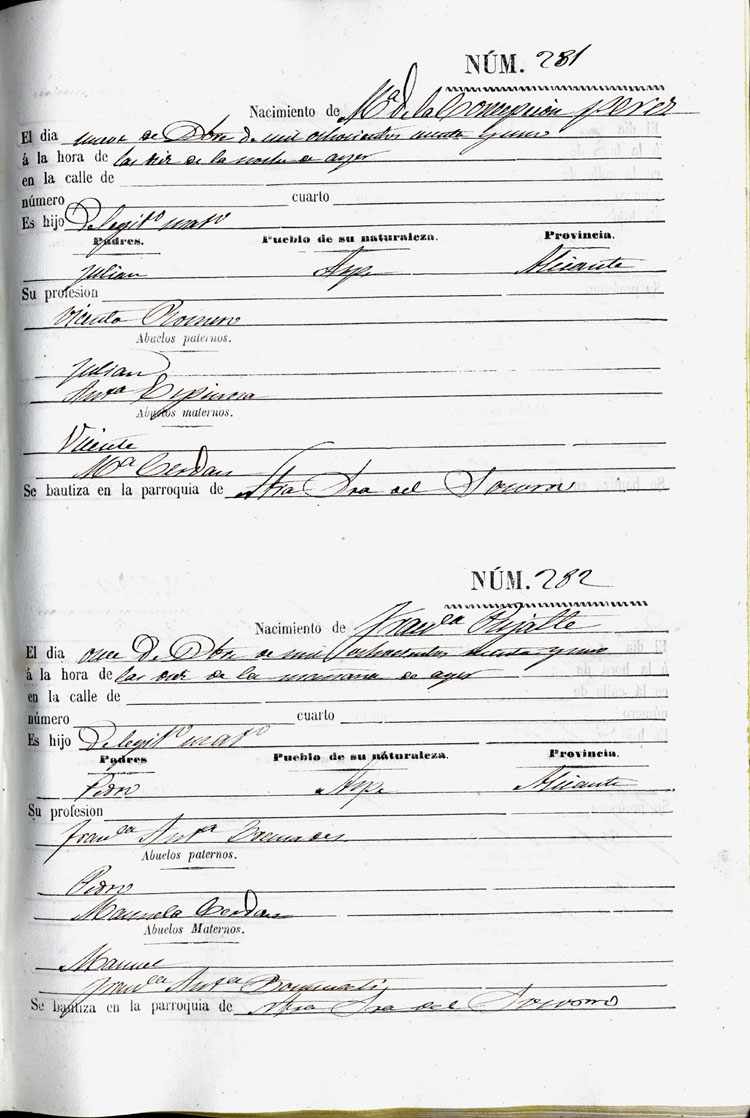 NÚM. 281
Nacimiento de Mª de la Concepción Perez
El dia nueve de Dbre de mil ochocientos y uno
á la hora de las diez de la noche de ayer
en la calle de
número cuarto
Es hijo de legitº matº
Padres. Pueblo de su naturaleza. Provincia.
Julian Aspe Alicante
Su profesion
Vicenta Romero
Abuelos paternos.
Julian
Antª Espinosa
Abuelos maternos.
Vicente
Mª Cerdan
Se bautiza en la parroquia de Ntra Sra del Socorro
NÚM. 282
Nacimiento de Franca
El dia once de Dbre de mil ochocientos y uno
á la hora de las de la mañana de ayer
en la calle de
número cuarto
Es hijo de legitº matº
Padres Pueblo de su náturaleza. Provincia.
Pedro Aspe Alicante
Su profesion
Franca Antª
Abuelos paternos.
Pedro
Manuela Cerdan
Abuelos Maternos.
Manuel
Franca Antª
Se bautiza en la parroquia de Ntra Sra del Socorro